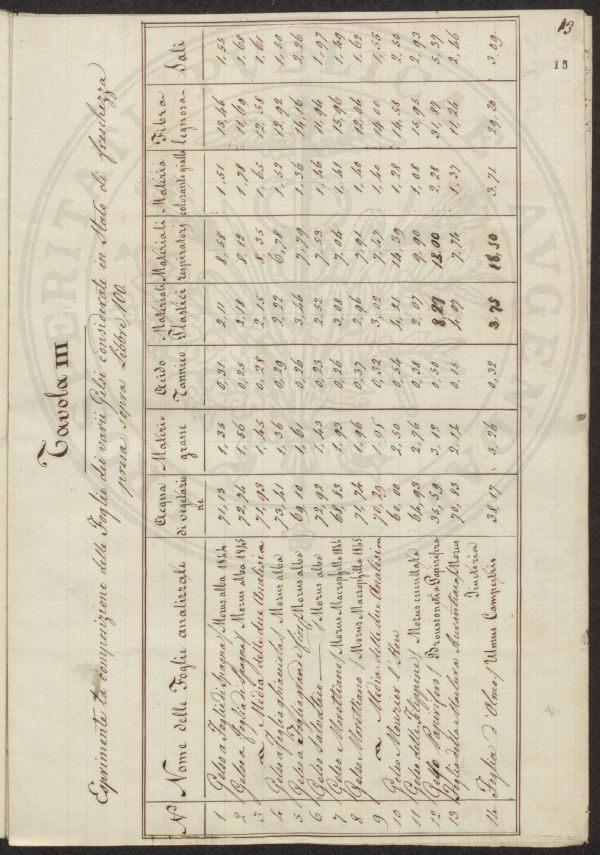 13
15
Tavola III
Esprimente la composizione delle Foglie dei varii Gelsi considerate in Stato di freschezza
presa sopra Libbre 100.
N.° Nome delle Foglie analizzate Acqua di vegetazione Materie grasse Acido Tannico Materiali Plastici Materiali respiratorj Materia colorante gialla Fibra legnosa Sali
1 Gelso a Foglia di Spagna / Morus alba 1844 71,13 1,35 0,31 2,11 8,58 1,51 13,46 1,55
2 Gelso a Foglia di Spagna / Morus alba 1845 72,74 1,56 0,25 2,18 8,12 1,78 11,69 1,68
3 Media delle due Analisi 71,93 1,45 0,28 2,15 8,35 1,65 12,58 1,61
4 Gelso a foglia ghiacciola / Morus alba 73,41 1,36 0,29 2,22 6,78 1,52 12,92 1,50
5 Gelso a Foglia / Morus alba 69,10 1,61 0,26 3,46 7,79 1,36 14,16 2,26
6 Gelso Selvatico / Morus alba 72,92 1,43 0,23 2,52 7,53 1,46 11,94 1,97
7 Gelso Morettiano / Morus Macrophilla 1844 68,83 1,93 0,26 3,08 7,04 1,41 15,96 1,49
8 Gelso Morettiano / Morus Macrophilla 1845 71,74 1,96 0,37 2,96 7,91 1,40 12,04 1,62
9 Media delle due Analisi 70,29 1,95 0,32 3,02 7,47 1,40 14,00 1,55
10 Gelso Maurier 60,00 2,50 0,54 4,21 14,39 1,28 14,58 2,50
11 Gelso delle Filippine / Morus cucullata 64,93 2,76 0,38 2,07 9,90 1,08 15,95 2,93
12 Gelso Papirifero / Broussonetia Papirifera 35,59 3,12 0,50 8,27 13,00 2,28 31,87 5,37
13 Foglia della Maclura Aurantiaca / Morus Tinctoria 70,83 2,14 0,15 4,07 7,74 1,37 11,24 2,46
14 Foglia d'Olmo / Ulmus Campestris 38,17 3,26 0,32 3,75 18,50 3,71 29,20 3,09